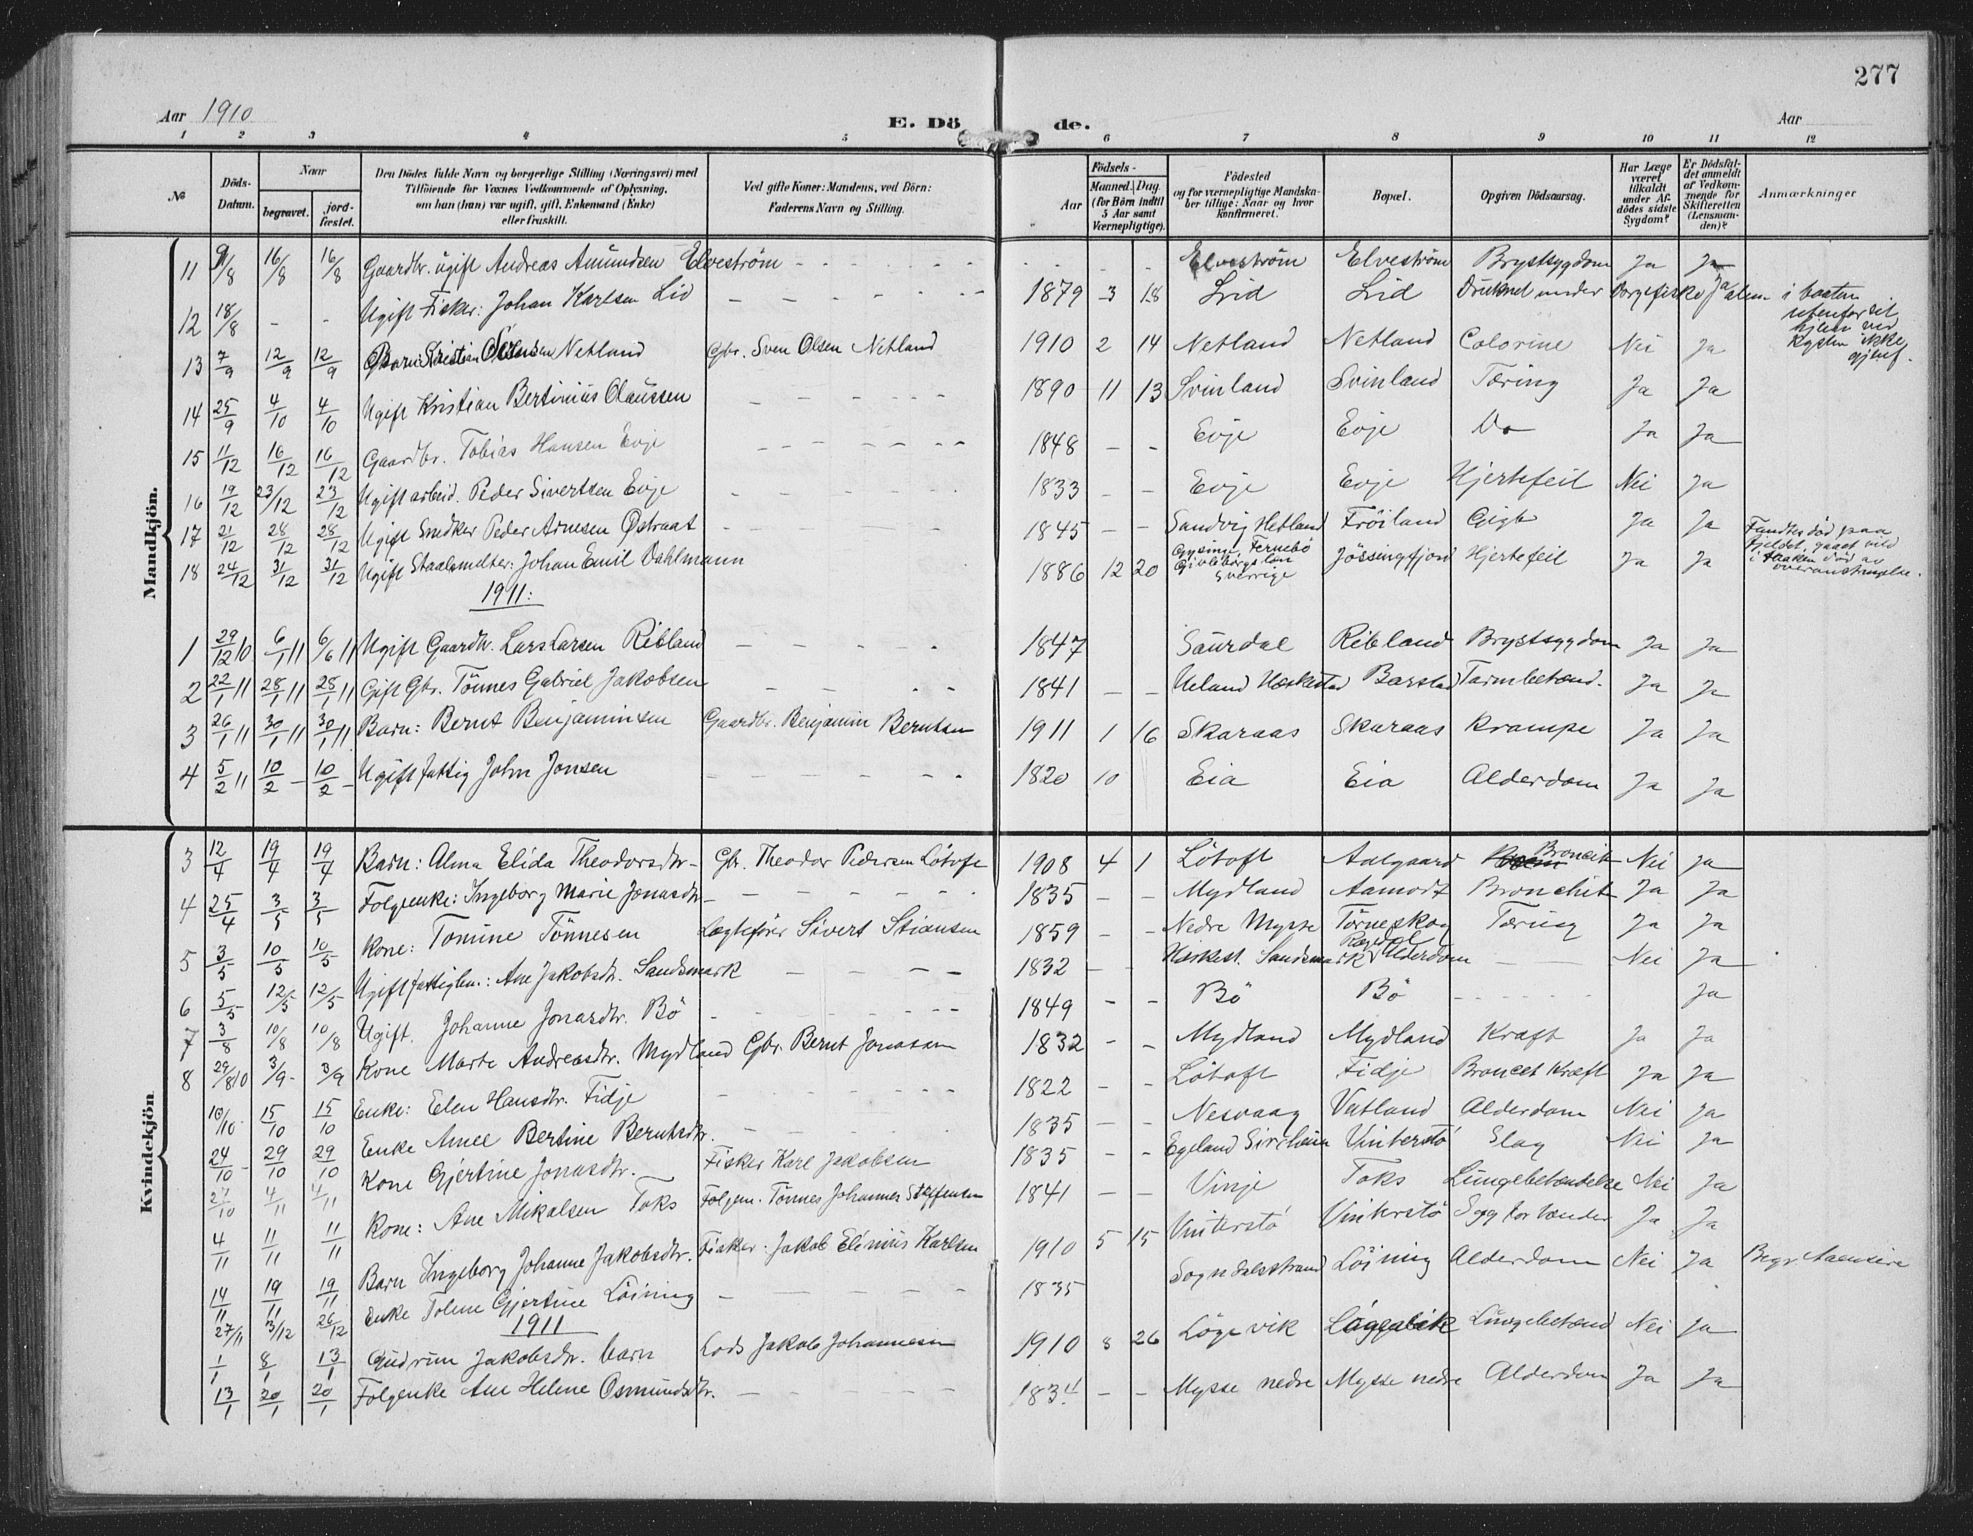 277
Aar 1910
E. Dö de.
Aar
1 2 3 4 5 6 7 8 9 10 11 12
№
Döds-Datum.
Naar
begravet.
jord-fæstet.
Den Dödes fulde Navn og borgerlige Stilling (Næringsvei) med
Tilföiende for Voxnes Vedkommende af Oplysning,
om han (hun) var ugift, gift, Enkemand (Enke)
eller fraskilt.
Ved gifte Koner: Mandens, ved Börn:
Faderens Navn og Stilling.
Födsels-
Aar
Maaned. Dag
(for Börn indtil
5 Aar samt
Værnepligtige).
Födested
og for værnepligtige Mandska-
ber tillige: Naar og hvor
konfirmeret.
Bopæl.
Opgiven Dödsaarsag.
Har Læge
været
tilkaldt
under Af-
dödes sidste
Sygdom?
Er Dödsfal-
det anmeldt
af Vedkom-
mende for
Skifteretten
(Lensman-
den)?
Anmærkninger
Mandkjön.
11 9/8 16/8 16/8 Gaardbr. ugift Andreas Amundsen Elveström - - - - Elveström Elveström Brystsygdom Ja Ja
12 18/8 - - Ugift Fisker: Johan Karlsen Lid - - - 1879 3 18 Lid Lid Druknet under Dorgefiske Ja alene i baaten utenfor Lit hjem ved Kysten ikke
13 7/9 12/9 12/9 Barn: Kristian Olsen Netland Gbr. Sven Olsen Netland 1910 2 14 Netland Netland Colorine Nei Ja
14 25/9 4/10 4/10 Ugift Kristian Bertinius Olaussen - - - 1890 11 13 Svinland Svinland Tæring Ja Ja
15 11/12 16/12 16/12 Gaardbr. Tobias Hansen Evje - - - 1848 - - Evje Evje Do Ja Ja
16 19/12 23/12 23/12 Ugift arbeid. Peder Sivertsen Evje - - - 1833 - - Evje Evje Hjertefeil Nei Ja
17 21/12 28/12 28/12 Ugift Snedker Peder Arnesen Østraat - - - 1845 - - Sandvig Hetland Fröiland Gigt Ja Ja Fundtes död paa fjeldet, gaaet vild i taaken död av overanstrengelse.
18 24/12 31/12 31/12 Ugift Staalsmelter: Johan Emil Dahlmann 1886 12 20 Gysinge, Fernebö Gefleborgs län Sverrige Jössingfjord Hjertefeil Ja Ja
1911:
1 29/12 10 6/1 11 6/6 11 Ugift Gaardbr. Lars Larsen Ribland - - - 1847 Saurdal Ribland Brystsygdom Ja Ja
2 22/1 11 28/1 11 28/1 11 Gift Gbr. Tönnes Gabriel Jakobsen - - 1841 - - Ueland Heskestad Barstad Tarmbetænd. Ja Ja
3 26/1 11 30/1 11 30/1 11 Barn: Bernt Benjaminsen Gaardbr. Benjamin Berntsen 1911 1 16 Skaraas Skaraas Krampe Ja Ja
4 5/2 11 10/2 - 10/2 - Ugift fattig John Jonsen - - - 1820 10 Eia Eia Alderdom Ja Ja
Kvindekjön
3 12/4 19/4 19/4 Barn: Alma Elida Theodorsdtr - Gbr. Theodor Pedersen Lötoft 1908 4 1 Lötoft Aalgaard Broncit Nei Ja
4 25/4 3/5 3/5 Folgeenke: Ingeborg Marie Jonasdtr - - - - 1835 - - Mydland Aamodt Bronchit Ja Ja
5 3/5 10/5 10/5 Kone: Tomine Tönnesen Lægtefører Sivert Stiansen 1859 - - Nedre Mysse Törneskog Tæring Ja Ja
6 5/5 12/5 12/5 Ugift fattiglem.: Ane Jakobsdtr. Sandsmark - - - 1832 - - Heskest. Sandsmark Alderdom - - Nei Ja
7 3/8 10/8 10/8 Ugift. Johanne Jonasdtr. Bö - - - 1849 - - Bö Bö - - - Ja
8 29/8 10 3/9 - 3/9 Kone Marte Andreasdtr. Mydland Gbr. Bernt Jonassen 1832 - - Mydland Mydland Kræft Ja Ja
10/10 15/10 15/10 Enke: Elen Hansdtr. Fidje - - - 1822 - - Lötoft Fidje Broncet Kræft Ja Ja
24/10 29/10 29/10 Enke Amel Bertine Berntsdtr. - - - 1835 - - Nesvaag Vatland Alderdom Nei Ja
27/10 4/11 4/11 Kone Gjertine Jonasdtr. Fisker Karl Jakobsen 1835 - - Egeland Sirekhein Vinterstö Slag Nei Ja
4/11 11/11 11/11 Kone: Ane Mikalsen Toks Folgem. Tönnes Johannes Steffensen 1841 - - Vinje Toks Lungebetændelse Nei Ja
14/11 19/11 19/11 Barn Ingeborg Johanne Jakobsdtr. Fisker: Jakob Elinius Karlsen 1910 5 15 Vinterstö Vinterstö Syg for tænder Ja Ja
27/11 3/12 26/12 Enke Tolene Gjertine Löining - - - 1835 Sogndalsstrand Löining Alderdom Nei Ja
1911
1/1 8/1 13/1 Gudrun Jakobsdtr. barn Lods Jakob Johannesen 1910 8 26 Lögevik Lögevik Lungebetænd Nei Ja
13/1 20/1 20/1 Folgenke Ane Helene Osmundsdtr. - - - 1834 - - Mysse nedre Mysse nedre Alderdom Ja Ja